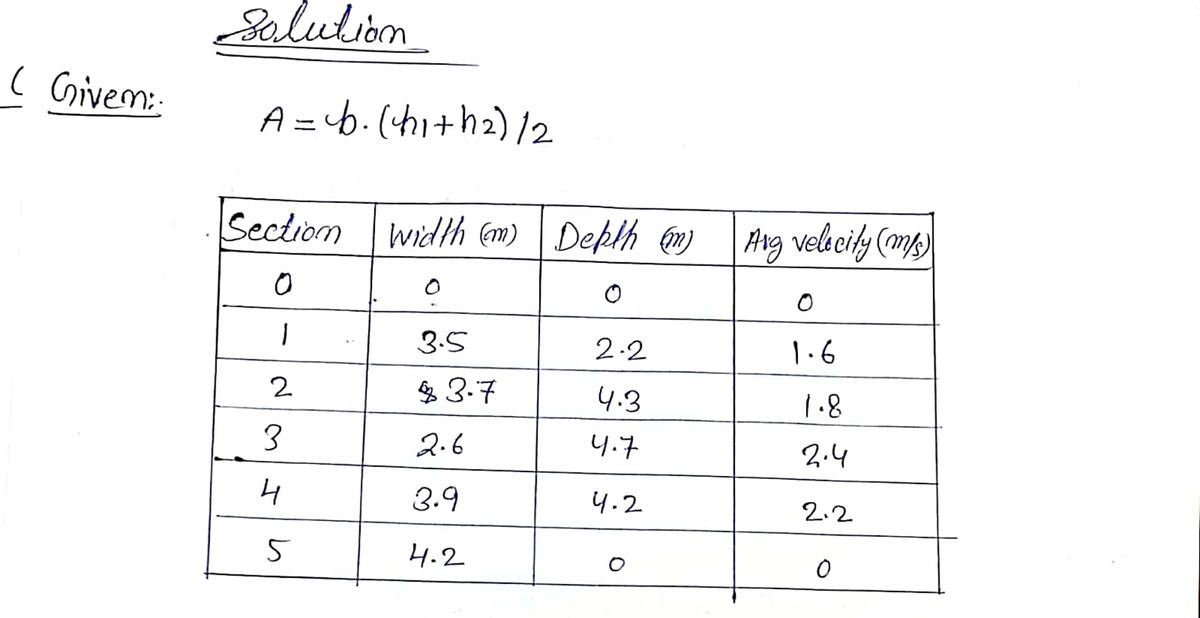 Solution
( Given:-
A = b. (h1+h2)/2
Section Width (m) Depth (m) Avg velocity (m/s)
0 0 0 0
1 3.5 2.2 1.6
2 3.7 4.3 1.8
3 2.6 4.7 2.4
4 3.9 4.2 2.2
5 4.2 0 0